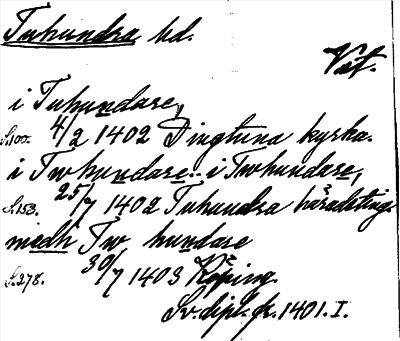 Tuhundra hd.
Vstm.
i Tuhundare,
S.100. 4/2 1402 Dingtuna kyrka.
i Twhundare.. i Twhundare,
S.153. 25/7 1402 Tuhundra häradsting.
medh Tw hundare
S.278. 30/7 1403 Köping.
Sv. dipl. fr. 1401. I.